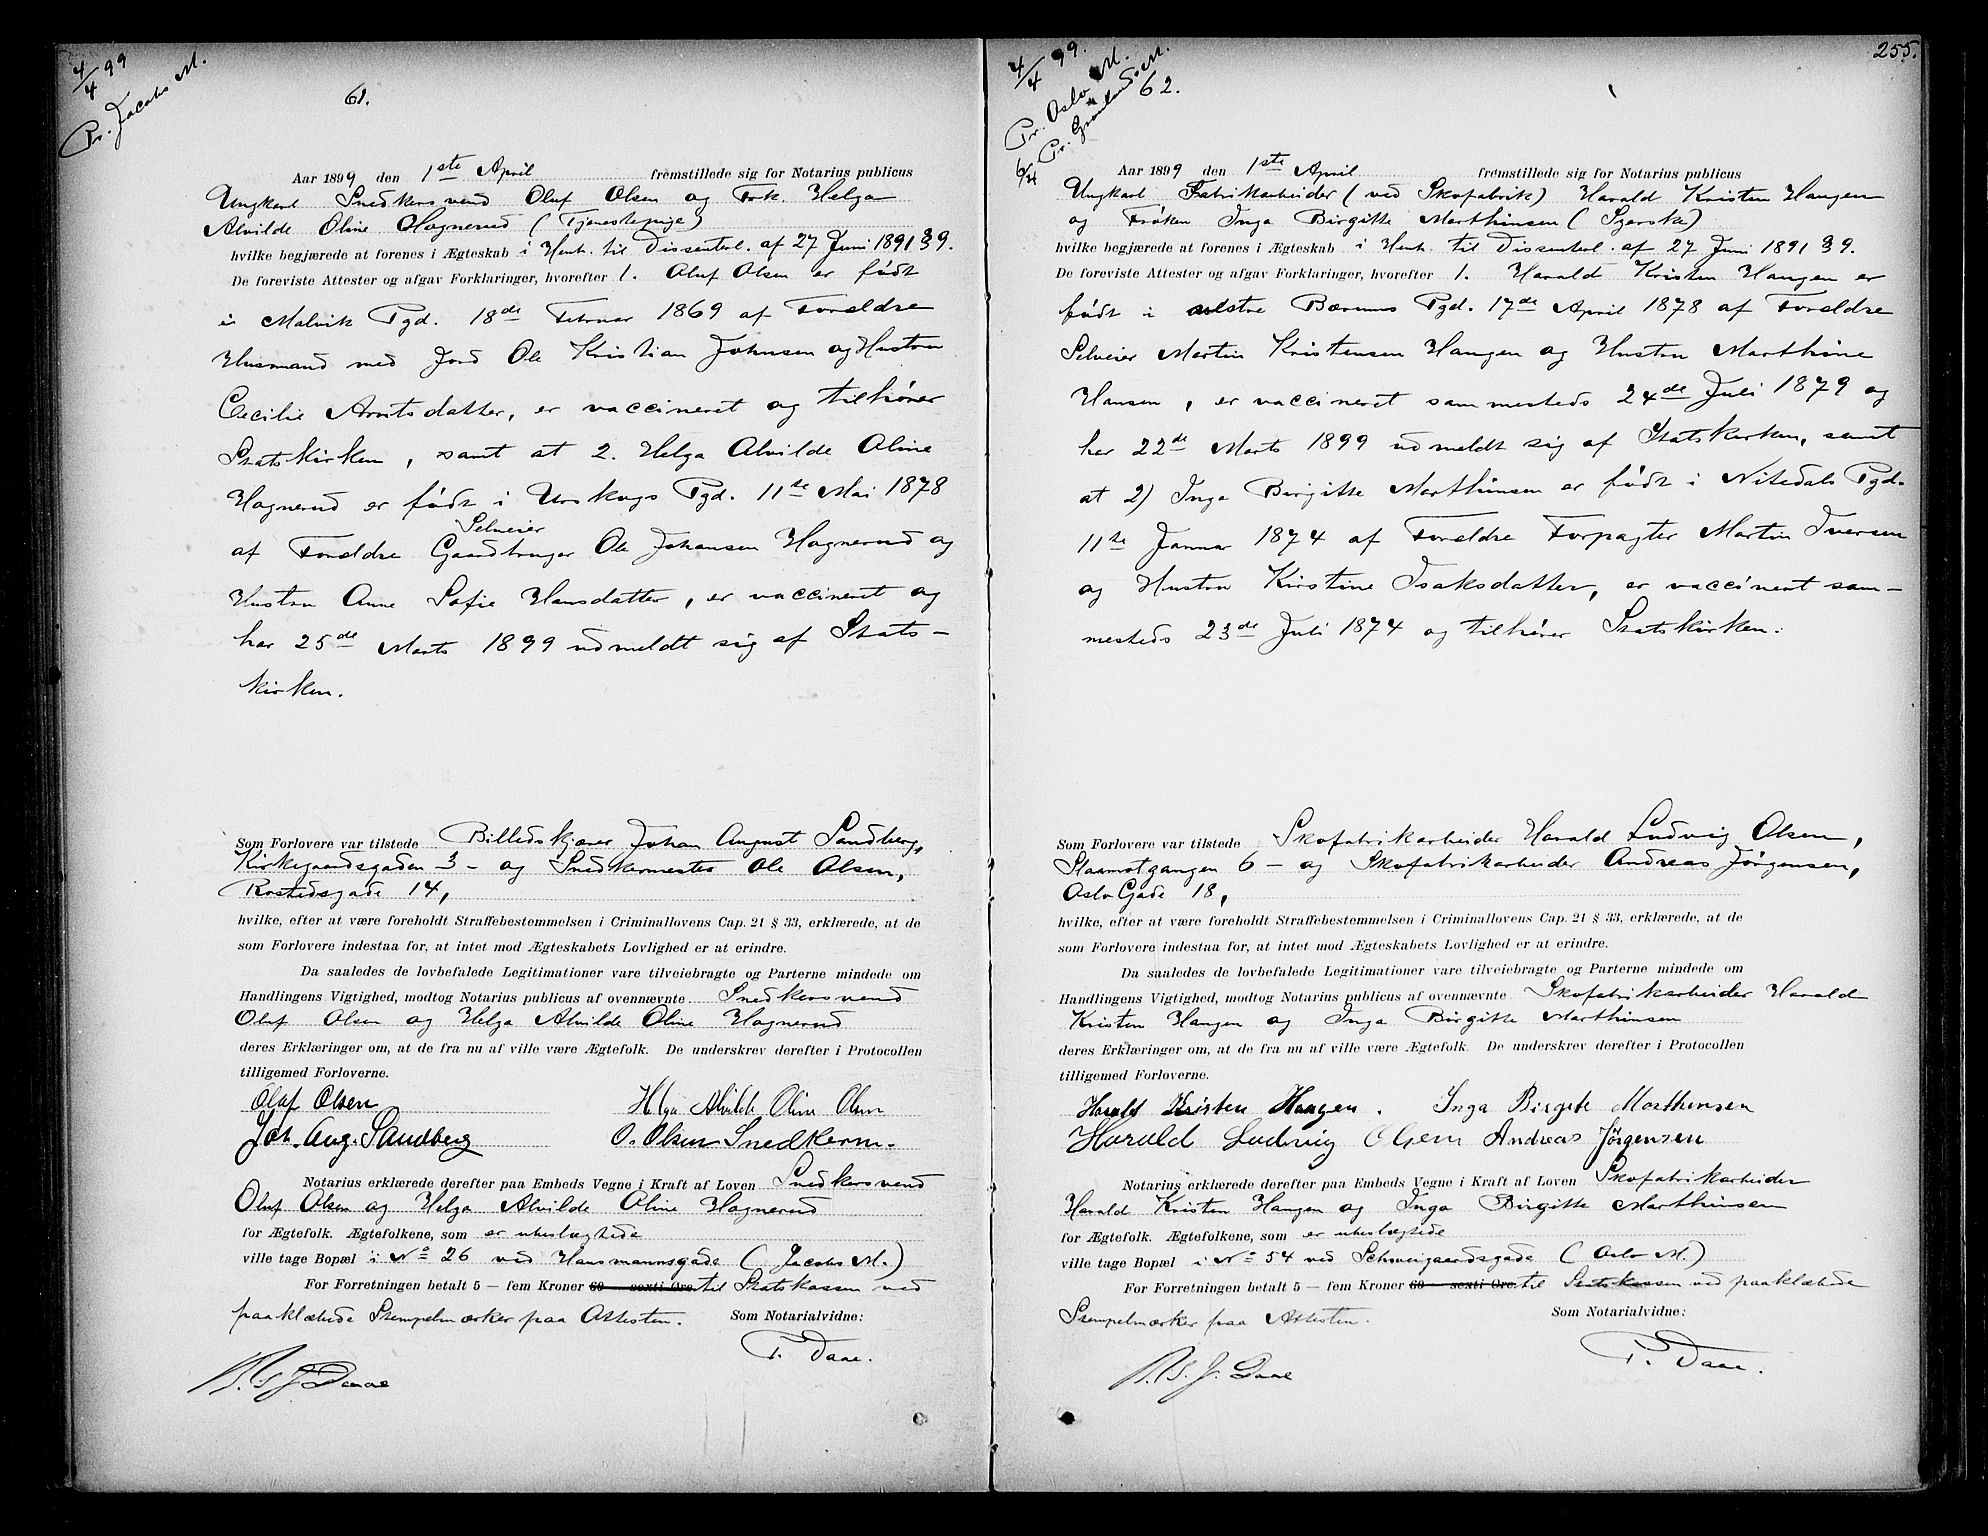 4/4 99
Pr. Jacobs M.
61.
Aar 1899 den 1ste April fremstillede sig for Notarius publicus
Ungkarl Snedkersvend Oluf Olsen og Frk. Helga
Alvilde Oline Hognerud (Tjenestepige)
hvilke begjærede at forenes i Ægteskab i Henh. til Dissenterl. af 27 Juni 1891 § 9.
De foreviste Attester og afgav Forklaringer, hvorefter 1. Oluf Olsen er født
i Malvik Pgd. 18de Februar 1869 af Forældre
Husmand med Jord Ole Kristian Johnsen og Hustru
Cecilie Arntsdatter, er vaccineret og tilhører
Statskirken, samt at 2. Helga Alvilde Oline
Hognerud er født i Urskogs Pgd. 11te Mai 1878
Selveier
af Forældre Gaardbruger Ole Johansen Hognerud og
Hustru Anne Sofie Hansdatter, er vaccineret og
har 25de Marts 1899 udmeldt sig af Stats-
kirken.
Som Forlovere var tilstede Billedskjærer Johan August Sandberg,
Kirkegaardsgaden 3 - og Snedkermester Ole Olsen,
Rostedsgade 14,
hvilke, efter at være foreholdt Straffebestemmelsen i Criminallovens Cap. 21 § 33, erklærede, at de
som Forlovere indestaa for, at intet mod Ægteskabets Lovlighed er at erindre.
Da saaledes de lovbefalede Legitimationer vare tilveiebragte og Parterne mindede om
Handlingens Vigtighed, modtog Notarius publicus af ovennævnte Snedkersvend
Oluf Olsen og Helga Alvilde Oline Hognerud
deres Erklæringer om, at de fra nu af ville være Ægtefolk. De underskrev derefter i Protocollen
tilligemed Forloverne.
Oluf Olsen Helga Alvilde Oline Olsen
Joh. Aug. Sandberg O. Olsen Snedkerm.
Notarius erklærede derefter paa Embeds Vegne i Kraft af Loven Snedkersvend
Oluf Olsen og Helga Alvilde Oline Hognerud
for Ægtefolk. Ægtefolkene, som er ubeslægtede
ville tage Bopæl i No 26 ved Hausmannsgade (Jacobs M.)
For Forretningen betalt 5 — fem Kroner 60 — sexti Øre. til Statskassen ved
paaklæbede Stempelmærker paa Attesten. Som Notarialvidne:
T. Daae.
4/4 99.
Pr. Oslo M.
6/4 Pr. Grønlands M.
62.
255.
Aar 1899 den 1ste April fremstillede sig for Notarius publicus
Ungkarl Fabrikarbeider (ved Skofabrik) Harald Kristen Haugen
og Frøken Inga Birgitte Marthinsen (Syerske)
hvilke begjærede at forenes i Ægteskab i Henh. til Dissenterl. af 27 Juni 1891 § 9.
De foreviste Attester og afgav Forklaringer, hvorefter 1. Harald Kristen Haugen er
født i Bærums Pgd. 17de April 1878 af Forældre
Selveier Martin Kristensen Haugen og Hustru Marthine
Hansen, er vaccineret sammesteds 24de Juli 1879 og
har 22de Marts 1899 udmeldt sig af Statskirken, samt
at 2) Inga Birgitte Marthinsen er født i Nitedals Pgd.
11te Januar 1874 af Forældre Forpagter Martin Iversen
og Hustru Kirstine Isaksdatter, er vaccineret sam-
mesteds 23de Juli 1874 og tilhører Statskirken.
Som Forlovere var tilstede Skofabrikarbeider Harald Ludvig Olsen,
6 - og Skofabrikarbeider Andreas Jørgensen,
Oslo Gade 18,
hvilke, efter at være foreholdt Straffebestemmelsen i Criminallovens Cap. 21 § 33, erklærede, at de
som Forlovere indestaa for, at intet mod Ægteskabets Lovlighed er at erindre.
Da saaledes de lovbefalede Legitimationer vare tilveiebragte og Parterne mindede om
Handlingens Vigtighed, modtog Notarius publicus af ovennævnte Skofabrikarbeider Harald
Kristen Haugen og Inga Birgitte Marthinsen
deres Erklæringer om, at de fra nu af ville være Ægtefolk. De underskrev derefter i Protocollen
tilligemed Forloverne.
Harald Kristen Haugen. Inga Birgite Marthinsen
Harald Ludvig Olsen Andreas Jørgensen
Notarius erklærede derefter paa Embeds Vegne i Kraft af Loven Skofabrikarbeider
Harald Kristen Haugen og Inga Birgitte Marthinsen
for Ægtefolk. Ægtefolkene, som er ubeslægtede
ville tage Bopæl i No 54 ved Schweigaardsgade (Oslo M.)
For Forretningen betalt 5 — fem Kroner 60 — sexti Øre. til Statskassen ved paaklæbede
Stempelmærker paa Attesten. Som Notarialvidne:
T. Daae.